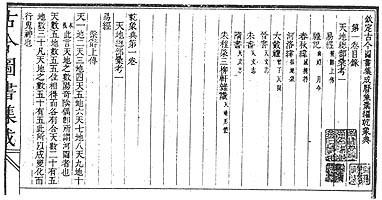 欽定古今圖書集成曆象彙編乾象典
第一卷目錄
天地總部彙考一
易經 繫辭上傳
禮記 月令
春秋緯
河洛緯
大戴禮
晉書 天文志
隋書 天文志
三柳軒雜識
乾象典第一卷
天地總部彙考一
易經
繫辭上傳
天一地二天三地四天五地六天七地八天九地十
此言天地之數陽奇陰偶即所謂河圖者也
天數五地數五五位相得而各有合天數二十有五
地數三十凡天地之數五十有五此所以成變化而
行鬼神也
古今圖書集成